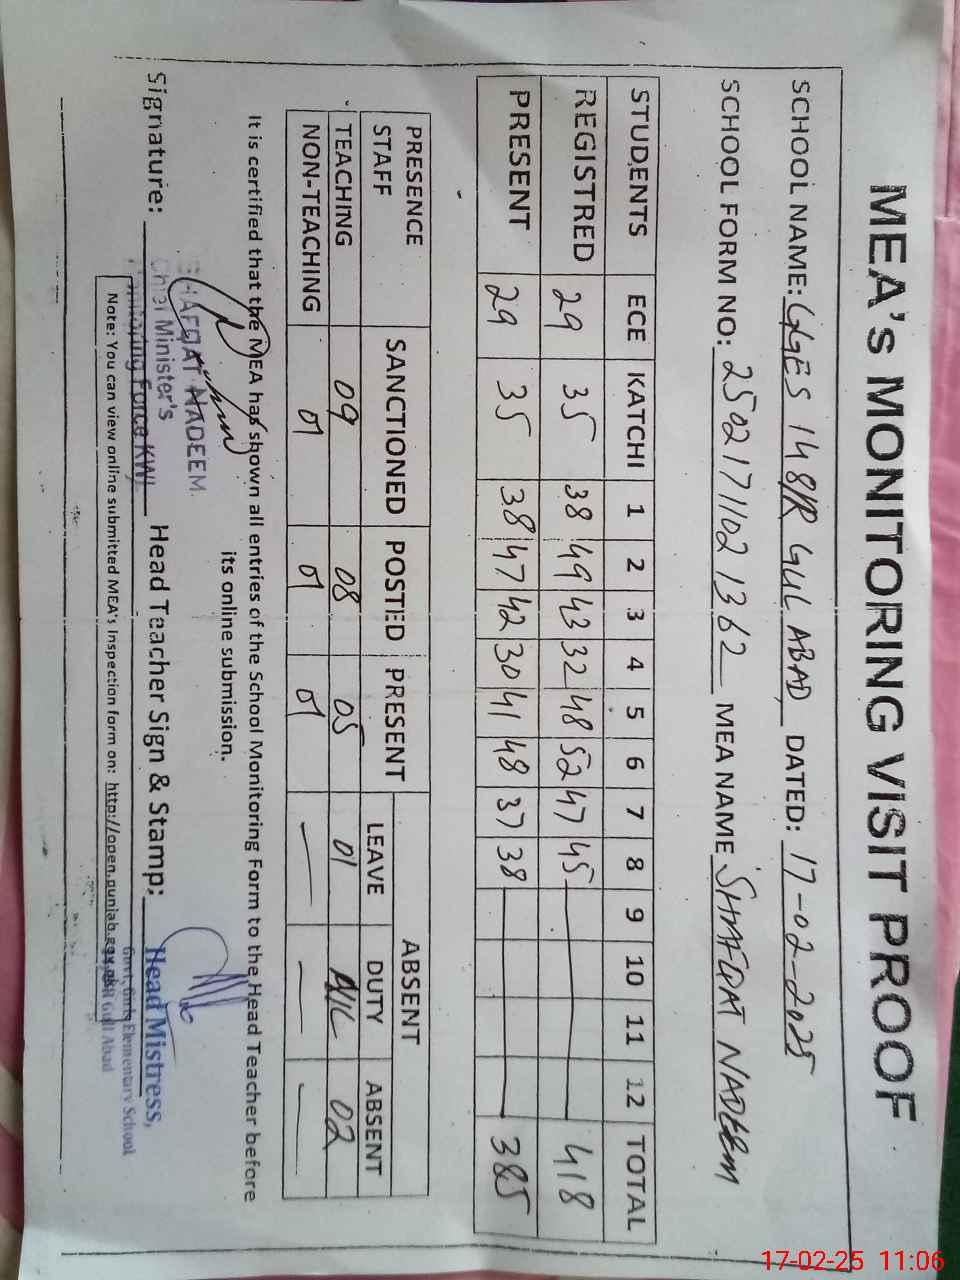 MEA's MONITORING VISIT PROOF
SCHOOL NAME: GGES 148/R GUL ABAD DATED: 17-02-2025
SCHOOL FORM NO: 2502171102 1362 MEA NAME SHAFQAT NADEEM
STUDENTS ECE KATCHI 1 2 3 4 5 6 7 8 9 10 11 12 TOTAL
REGISTRED 29 35 38 49 43 32 48 52 47 45 418
PRESENT 29 35 38 47 42 30 41 48 37 38 385
PRESENCE STAFF SANCTIONED POSTED PRESENT ABSENT
LEAVE DUTY ABSENT
TEACHING 09 08 05 01 NIL 02
NON-TEACHING 01 01 01 — — —
It is certified that the MEA has shown all entries of the School Monitoring Form to the Head Teacher before
its online submission.
SHAFQAT NADEEM
Chief Minister's
Monitoring Force KWL
Signature: Head Teacher Sign & Stamp:
Head Mistress,
Govt. Girls Elementary School
Gull Abad
Note: You can view online submitted MEA's Inspection form on: http://open.punjab.gov.pk
17-02-25 11:06